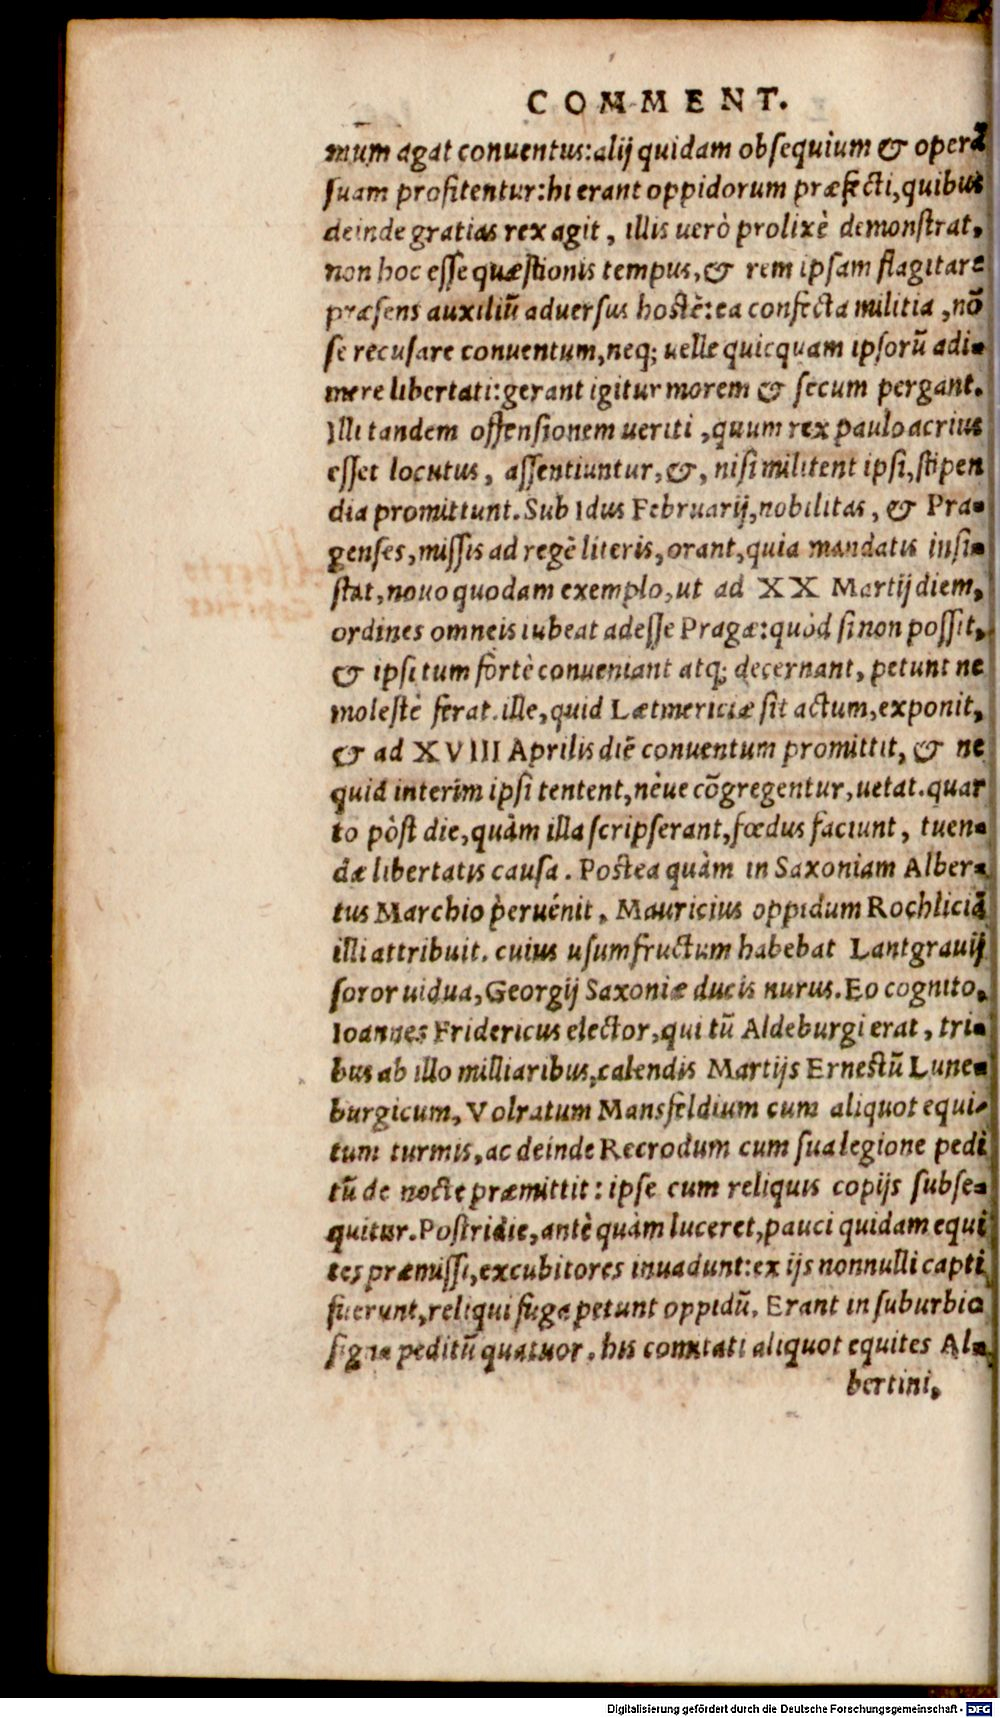 COMMENT.
mum agat conuentus: alij quidam obsequium & operã
suam profitentur: hi erant oppidorum præfecti, quibus
deinde gratias rex agit, illis uerò prolixè demonstrat,
non hoc esse quæstionis tempus, & rem ipsam flagitare
præsens auxiliũ aduersus hostẽ: ea confecta militia, nõ
se recusare conuentum, neq; uelle quicquam ipsorũ adi-
mere libertati: gerant igitur morem & secum pergant.
Illi tandem offensionem ueriti, quum rex paulo acrius
esset locutus, assentiuntur, &, nisi militent ipsi, stipen
dia promittunt. Sub Idus Februarij, nobilitas, & Pra-
genses, missis ad regẽ literis, orant, quia mandatis insi-
stat, nouo quodam exemplo, ut ad XX Martij diem,
ordines omneis iubeat adesse Pragæ: quòd si non possit,
& ipsi tum fortè conueniant atq; decernant, petunt ne
molestè ferat. ille, quid Lætmericiæ sit actum, exponit,
& ad XVIII Aprilis diẽ conuentum promittit, & ne
quid interim ipsi tentent, néue cõgregentur, uetat. quar
to pòst die, quàm illa scripserant, fœdus faciunt, tuen-
dæ libertatis causa. Postea quàm in Saxoniam Alber-
tus Marchio peruénit, Mauricius oppidum Rochliciã
illi attribuit. cuius usumfructum habebat Lantgrauij
soror uidua, Georgij Saxoniæ ducis nurus. Eo cognito,
Ioannes Fridericus elector, qui tũ Aldeburgi erat, tri-
bus ab illo milliaribus, calendis Martijs Ernestũ Lune-
burgicum, Volratum Mansfeldium cum aliquot equi-
tum turmis, ac deinde Recrodum cum sua legione pedi
tũ de nocte præmittit: ipse cum reliquis copijs subse-
quitur. Postridie, antè quàm luceret, pauci quidam equi
tes præmissi, excubitores inuadunt: ex ijs nonnulli capti
fuerunt, reliqui fuga petunt oppidũ. Erant in suburbio
signa peditũ quatuor. his comitati aliquot equites Al-
bertini,
Digitalisierung gefördert durch die Deutsche Forschungsgemeinschaft - DFG